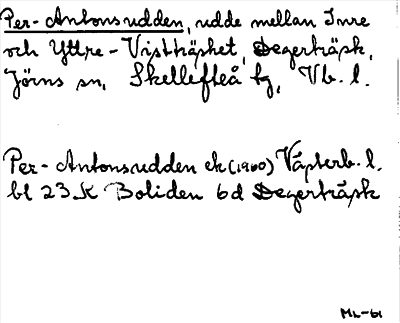 Per-Antonsudden, udde mellan Inre
och Yttre-Vistträsket, Degerträsk,
Jörns sn, Skellefteå tg, Vb. l.
Per-Antonsudden ek (1960) Västerb. l.
bl 23 K Boliden 6d Degerträsk
ML-61